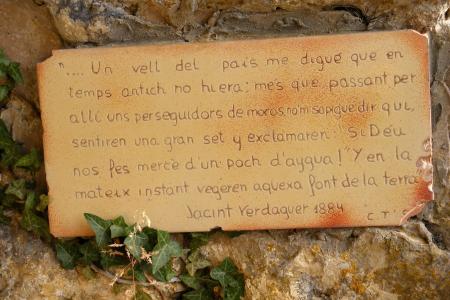 ".... Un vell del país me digué que en
temps antich no hi era; mes que passant per
allí uns perseguidors de moros, no m sapigué dir qui,
sentiren una gran set y exclamaren: "Si Deu
nos fes mercè d'un poch d'aygua!" Y en la
mateix instant vegeren aquexa font de la terra
Jacint Verdaguer 1884
C.T.